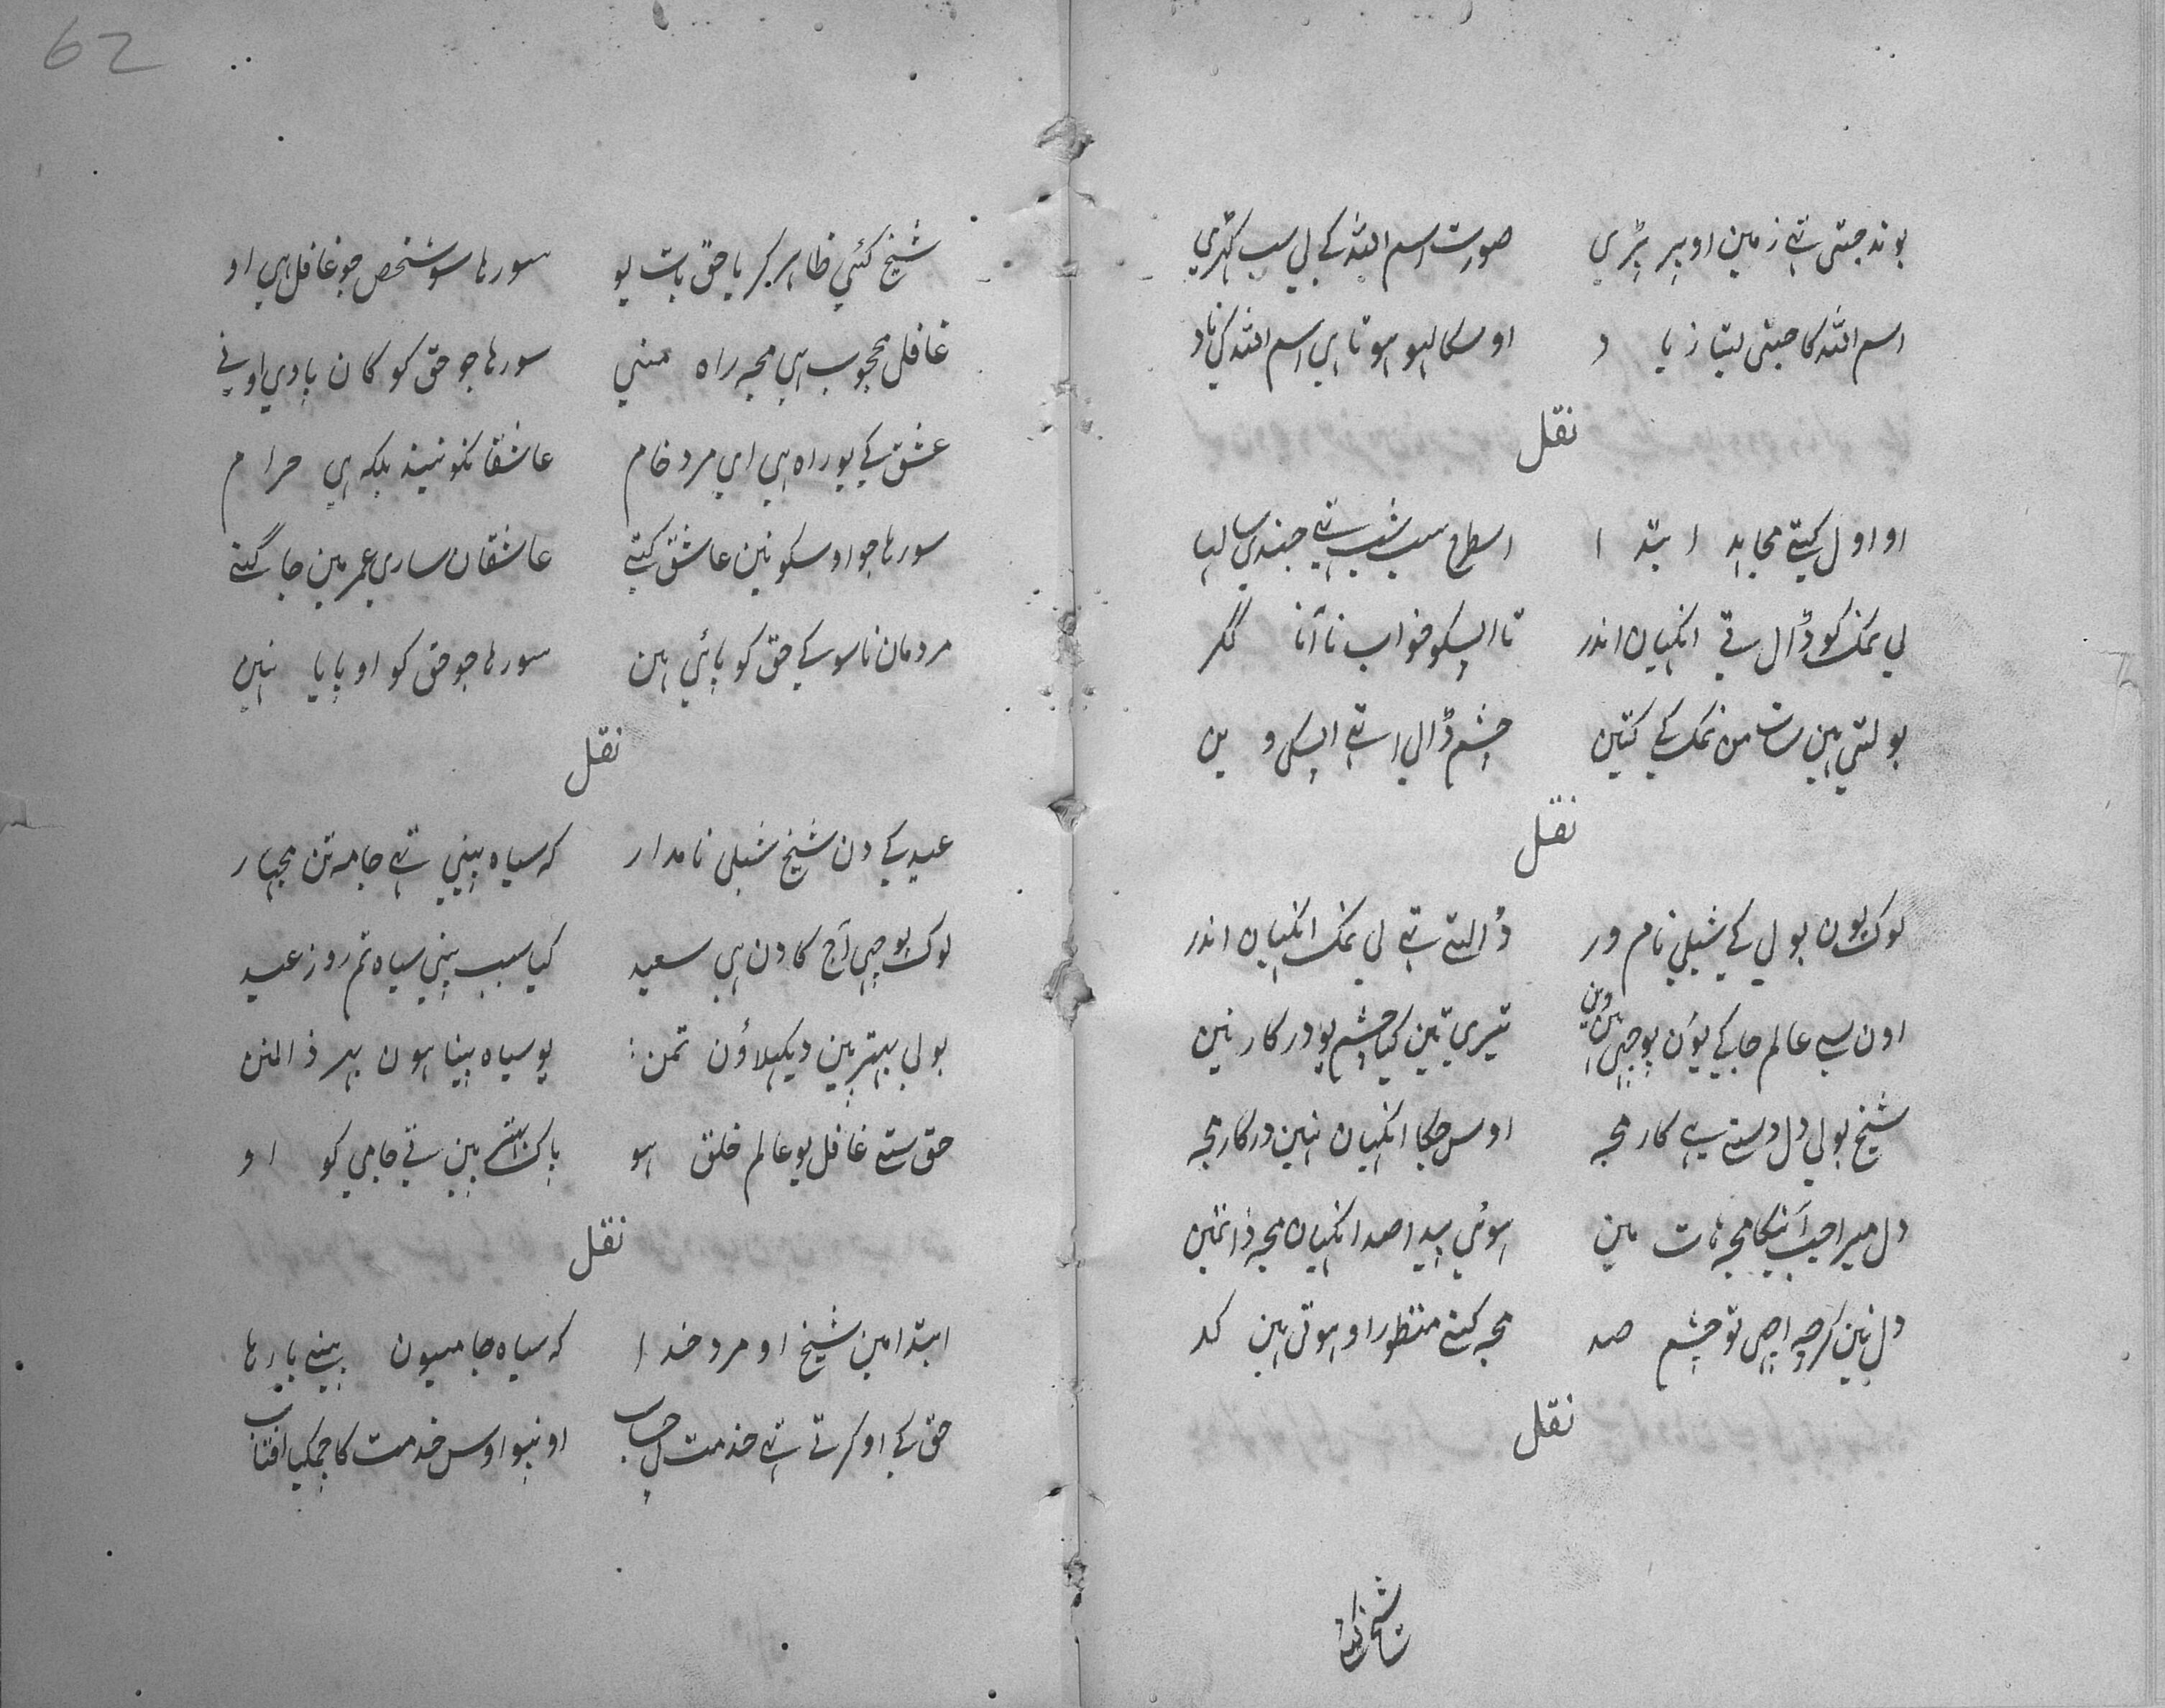 بوند جتی تہے زمین اوپر پڑی صورت اسم اللہ کے لی سب کھڑی
اسم اللہ کا جتی لیتا زیاد اوسکا لہو ہوتا ہی اسم اللہ کی ناد
نقل
او اول کیتے مجاہد ابتدا اسطرح سب شب تہے چند سالہا
لی نمک کو ڈال تے انکہیان اندر تا ایسکو خواب نا آنا مگر
بولتی ہین سات من نمک کے کتین چشم ڈالی اتہے ایسکی وین
نقل
لوک یون بولی کے شبلی نام ور ڈالتے تہے لی نمک انکہیان اندر
اون سے عالم جاکے یون پوچہی ہین وین تیری تین کیا چشم یو درکار نین
شیخ بولی دل دستے ہے کار مجہ اوس جگا انکہیان نہین درکار مجہ
دل میرا جب آئیگا مجہ ہات مین ہوئی پیدا صد انکہیان مجہ ذاتمین
دل نین گرچہ اچہی تو چشم صد مجہ کنے منظور او ہوتی ہین کد
نقل
شیخ کئی ظاہر کریا حق بات یو سورہا سو شخص جو غافل ہی او
غافل محجوب ہی مجہ راہ منی سورہا جو حق کو کان پاوی اونے
عشق کے یو راہ ہی ای مرد خام عاشقانکو نیند بلکہ ہی حرام
سورہا جو اوسکو نین عاشق کتے عاشقان ساری عمر مین جاگتے
مردمان نا سوکے حق کو پائی ہین سورہا جو حق کو او پایا نہین
نقل
عید کے دن شیخ شبلی نامدار کہ سیاہ پہنی تہے جامہ تن مجہار
لوک پوچہی آج کا دن ہی سعید کیا سبب پہنی سیاہ تم روز عید
بولی بہتر مین دیکہلاؤن تمن یو سیاہ پہنا ہون بہر ذالمنن
حق ستے غافل یو عالم خلق ہو پاک اپنے مین تے جامی کو او
نقل
ابتدا مین شیخ او مرد خدا کہ سیاہ جامہ یون پہنے یا رہا
حق کے او کرتے تہے خدمت لی حساب او نبوا اوس خدمت کا جمکیا افتاب